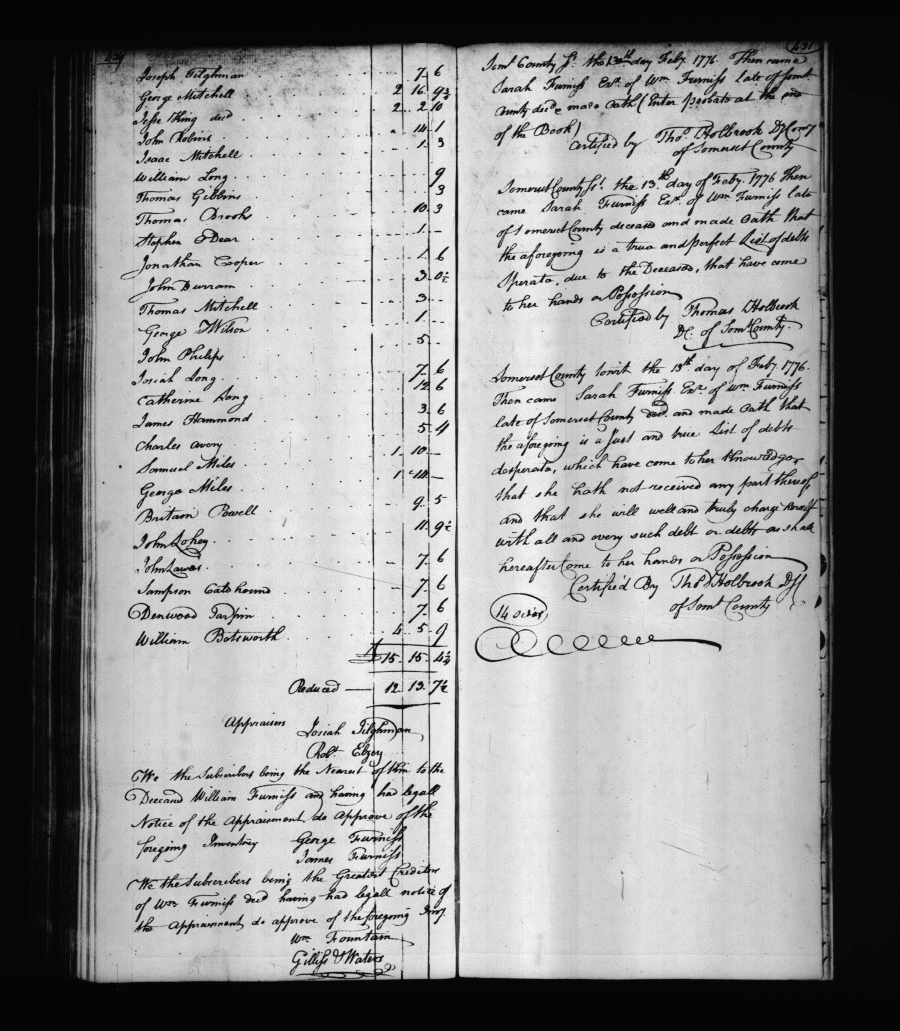 Joseph Tilghman 7 6
George Mitchell 2 16 9½
Jesse King decd 2 2 10
John Robins 14 1
Isaac Mitchell 1 3
William Long 9
Thomas Gibbins 3
Thomas Brooks 10 3
Stephen ODear 1 -
Jonathan Cooper 1 6
John Durram 3 0½
Thomas Mitchell 3 -
George Wilson 1 -
John Philips 5 -
Josiah Long 7 6
Catherine Long 12 6
James Hammond 3 6
Charles Avery 5 4
Samuel Miles 1 10 -
George Miles 1 14 -
Britain Powell 9 5
John 11 9½
John Lawes 7 6
Sampson Catohound 7 6
Denwood Turpin 7 6
William Botsworth 4 5 9
15 15 4¼
Reduced 12 13 7½
Appraisers Josiah Tilghman
Robt.
We the Subscribers being the Nearest of Kin to the
Deceased William Furniss and having had legall
Notice of the Appraisment do Approve of the
foregoing Inventory George Furniss
James Furniss
We the Subscribers being the Greatest Creditors
of Wm Furniss decd having had legall notice of
the Appraisment do approve of the foregoing Invy.
Wm Fountain
Gilliss & Waters
431
Somt County Sst. the 13th day Feby. 1776 Then came
Sarah Furniss Exr. of Wm Furniss late of Somt
County decd & made Oath (Enter probate at the end
of the Book)
Certified by Thos Holbrook Dy Comy
of Somerset County
Somerset County Sst. the 13th day of Feby. 1776 Then
came Sarah Furniss Exr. of Wm Furniss late
of Somerset County deceased and made Oath that
the aforegoing is a true and perfect List of debts
Sperata, due to the Deceased, that have come
to her hands or Possession
Certified by Thomas Holbrook
DC. of Somt County.
Somerset County towit the 13th day of Feby. 1776.
Then came Sarah Furniss Exr. of Wm Furniss
late of Somerset County decd. and made Oath that
the aforegoing is a Just and true List of debts
desperata, which have come to her Knowledge,
that she hath not received any part thereof
and that she will well and truly charge herself
with all and every such debt or debts as shall
hereafter Come to her hands or Possession
Certified By Thos Holbrook
of Somt County
14 sides